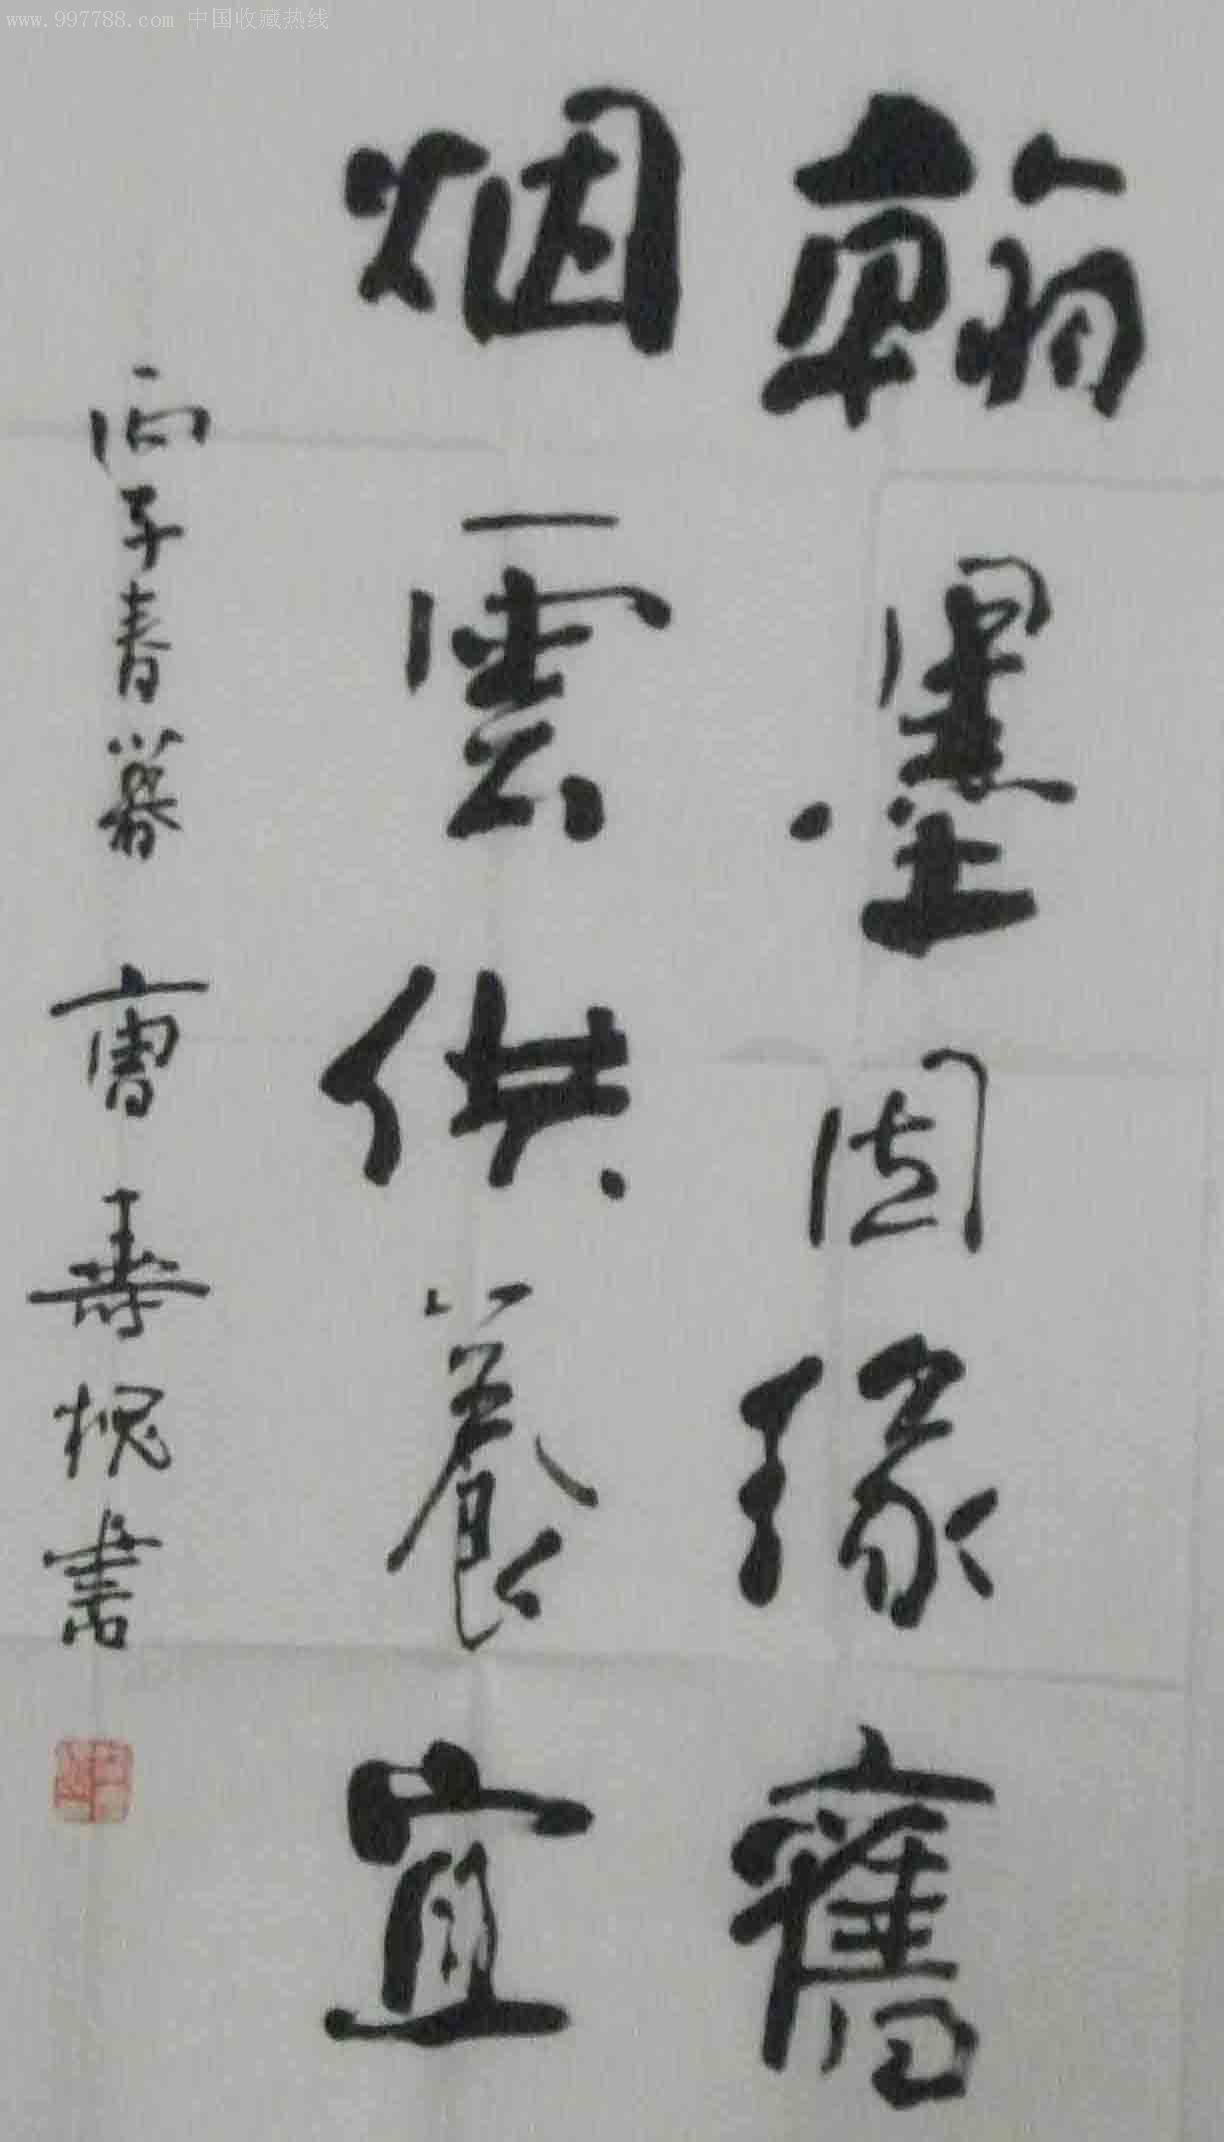 www.997788.com 中国收藏热线
翰墨因缘舊
烟雲供養宜
丙子春暮 曹壽槐書